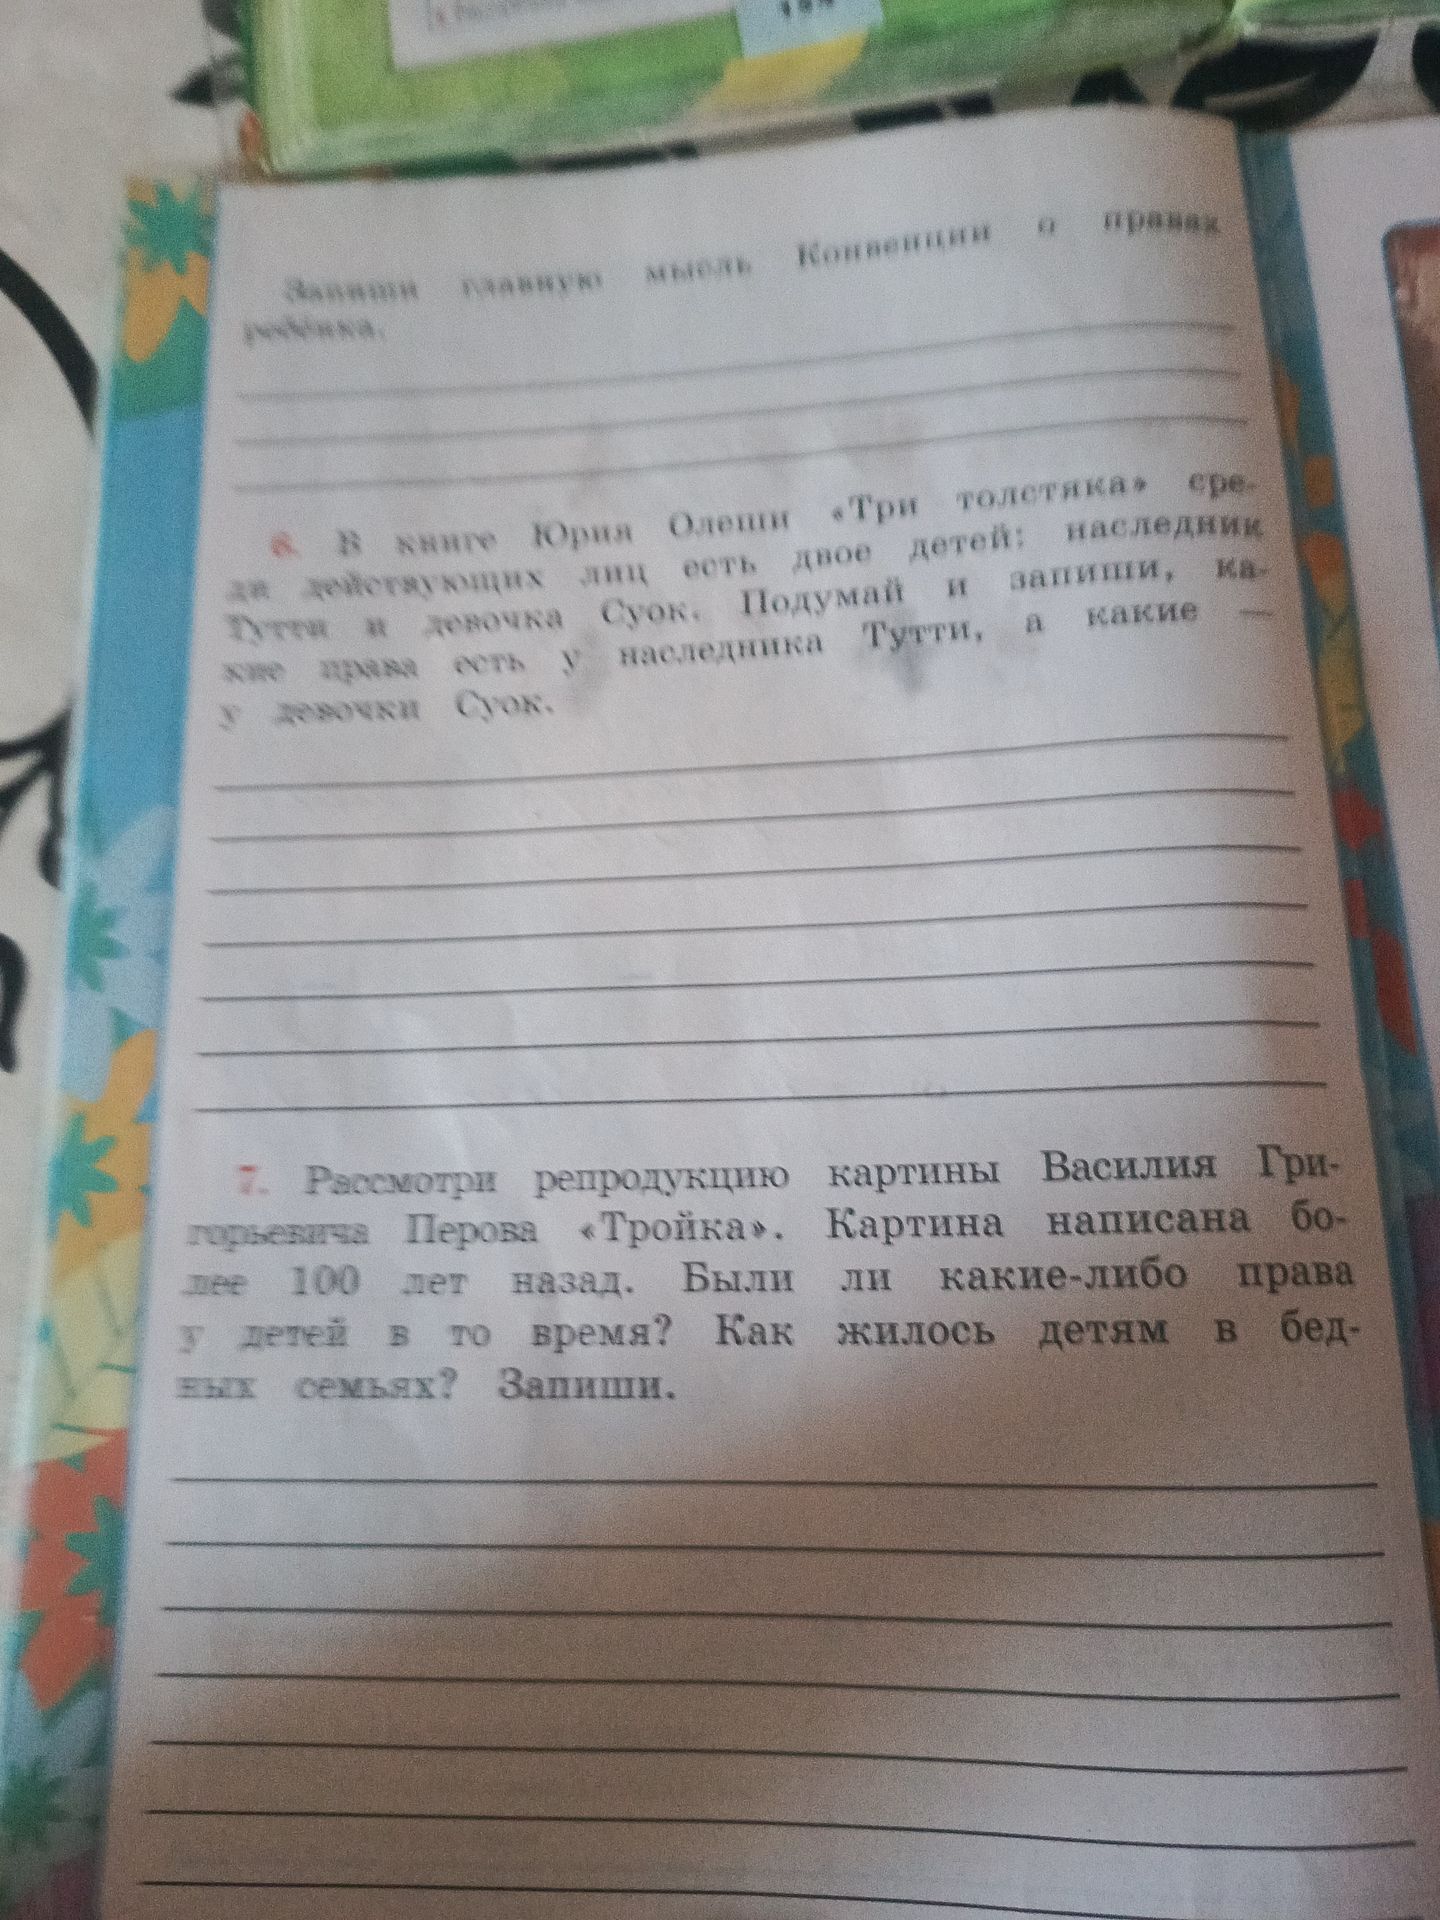 Запиши главную мысль Конвенции о правах
ребёнка.
6. В книге Юрия Олеши «Три толстяка» сре-
ди действующих лиц есть двое детей: наследник
Тутти и девочка Суок. Подумай и запиши, ка-
кие права есть у наследника Тутти, а какие —
у девочки Суок.
7. Рассмотри репродукцию картины Василия Гри-
горьевича Перова «Тройка». Картина написана бо-
лее 100 лет назад. Были ли какие-либо права
у детей в то время? Как жилось детям в бед-
ных семьях? Запиши.